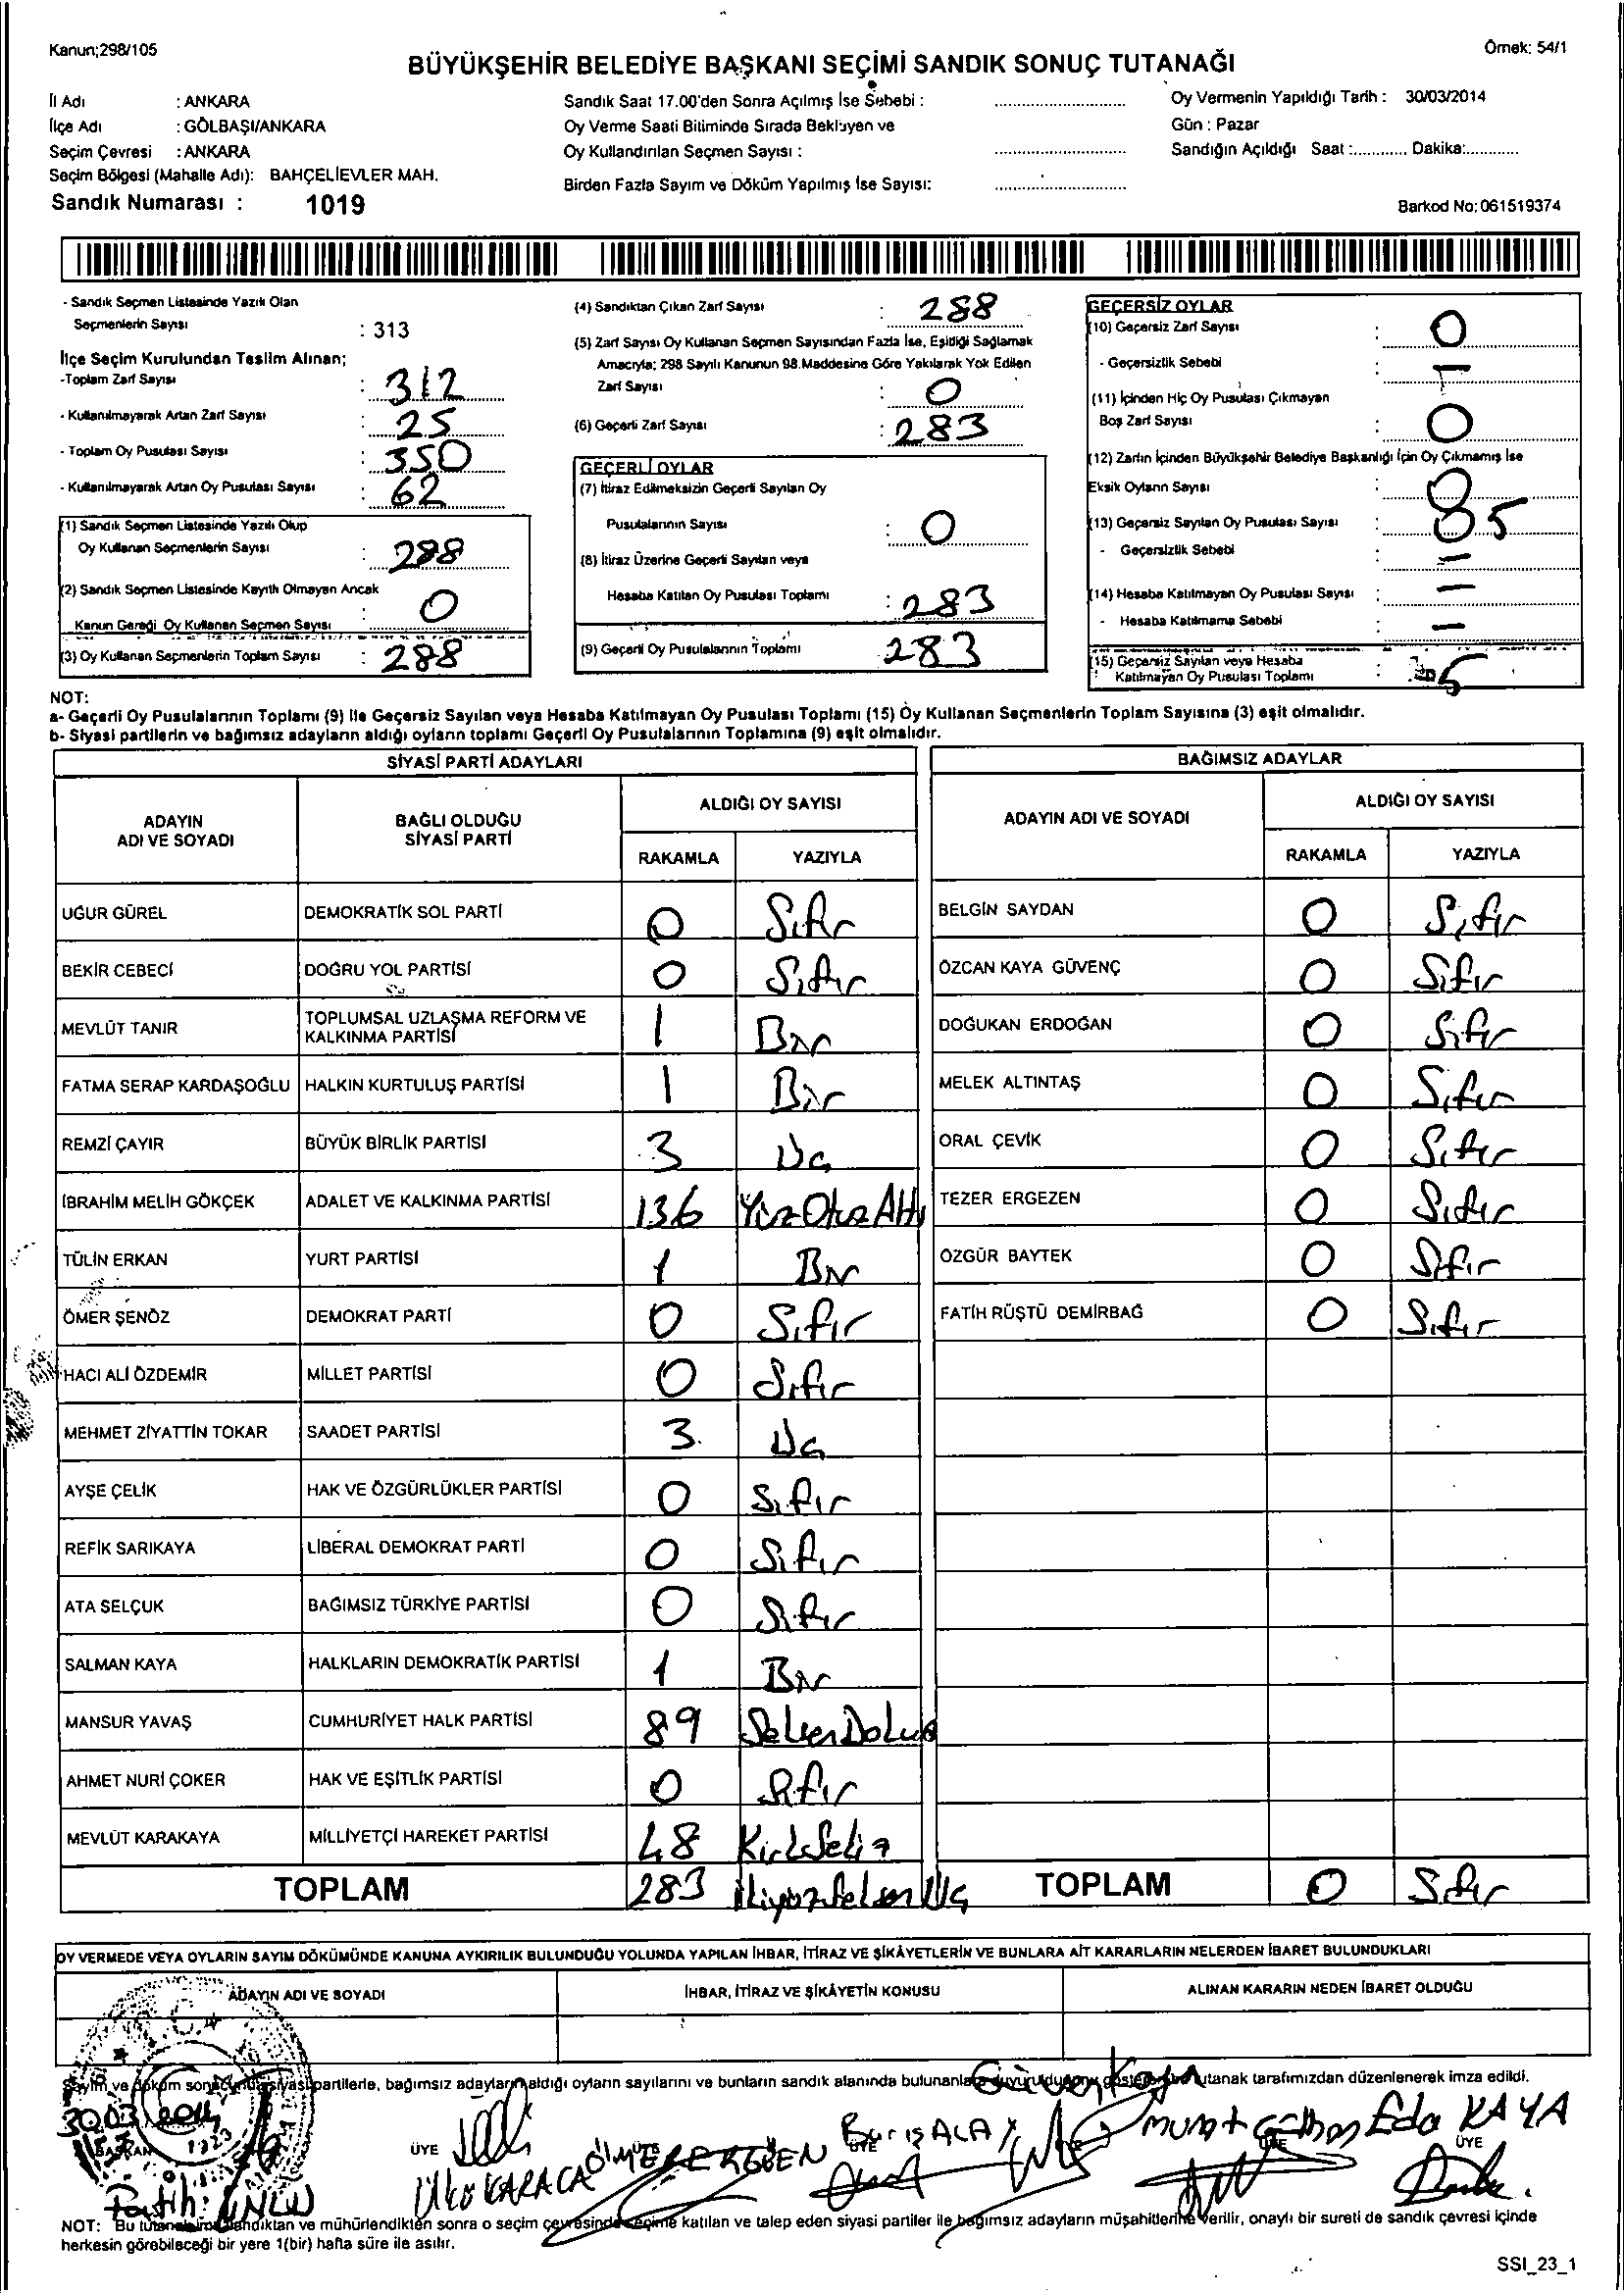 Kanun;298/105
Örnek: 54/1
BÜYÜKŞEHİR BELEDİYE BAŞKANI SEÇİMİ SANDIK SONUÇ TUTANAĞI
İl Adı : ANKARA
İlçe Adı : GÖLBAŞI/ANKARA
Seçim Çevresi : ANKARA
Seçim Bölgesi (Mahalle Adı): BAHÇELİEVLER MAH.
Sandık Numarası : 1019
Sandık Saat 17.00'den Sonra Açılmış İse Sebebi :
Oy Verme Saati Bitiminde Sırada Bekleyen ve
Oy Kullandırılan Seçmen Sayısı :
Birden Fazla Sayım ve Döküm Yapılmış İse Sayısı:
Oy Vermenin Yapıldığı Tarih : 30/03/2014
Gün : Pazar
Sandığın Açıldığı Saat :............ Dakika:............
Barkod No: 061519374
- Sandık Seçmen Listesinde Yazılı Olan
Seçmenlerin Sayısı : 313
İlçe Seçim Kurulundan Teslim Alınan;
-Toplam Zarf Sayısı : 312
- Kullanılmayarak Artan Zarf Sayısı : 25
- Toplam Oy Pusulası Sayısı : 350
- Kullanılmayarak Artan Oy Pusulası Sayısı : 62
(1) Sandık Seçmen Listesinde Yazılı Olup
Oy Kullanan Seçmenlerin Sayısı : 288
(2) Sandık Seçmen Listesinde Kayıtlı Olmayan Ancak
Kanun Gereği Oy Kullanan Seçmen Sayısı : 0
(3) Oy Kullanan Seçmenlerin Toplam Sayısı : 288
(4) Sandıktan Çıkan Zarf Sayısı : 288
(5) Zarf Sayısı Oy Kullanan Seçmen Sayısından Fazla İse, Eşitliği Sağlamak
Amacıyla; 298 Sayılı Kanunun 98.Maddesine Göre Yakılarak Yok Edilen
Zarf Sayısı : 0
(6) Geçerli Zarf Sayısı : 283
GEÇERLİ OYLAR
(7) İtiraz Edilmeksizin Geçerli Sayılan Oy
Pusulalarının Sayısı : 0
(8) İtiraz Üzerine Geçerli Sayılan veya
Hesaba Katılan Oy Pusulası Toplamı : 283
(9) Geçerli Oy Pusulalarının Toplamı 283
GEÇERSİZ OYLAR
(10) Geçersiz Zarf Sayısı : 0
- Geçersizlik Sebebi : -
(11) İçinden Hiç Oy Pusulası Çıkmayan
Boş Zarf Sayısı : 0
(12) Zarfın İçinden Büyükşehir Belediye Başkanlığı İçin Oy Çıkmamış İse
Eksik Oyların Sayısı : 0
(13) Geçersiz Sayılan Oy Pusulası Sayısı : 5
- Geçersizlik Sebebi : -
(14) Hesaba Katılmayan Oy Pusulası Sayısı : -
- Hesaba Katılmama Sebebi : -
(15) Geçersiz Sayılan veya Hesaba
Katılmayan Oy Pusulası Toplamı : 5
NOT:
a- Geçerli Oy Pusulalarının Toplamı (9) İle Geçersiz Sayılan veya Hesaba Katılmayan Oy Pusulası Toplamı (15) Oy Kullanan Seçmenlerin Toplam Sayısına (3) eşit olmalıdır.
b- Siyasi partilerin ve bağımsız adayların aldığı oyların toplamı Geçerli Oy Pusulalarının Toplamına (9) eşit olmalıdır.
SİYASİ PARTİ ADAYLARI
ADAYIN
ADI VE SOYADI
BAĞLI OLDUĞU
SİYASİ PARTİ
ALDIĞI OY SAYISI
RAKAMLA YAZIYLA
UĞUR GÜREL DEMOKRATİK SOL PARTİ 0 Sıfır
BEKİR CEBECİ DOĞRU YOL PARTİSİ 0 Sıfır
MEVLÜT TANIR TOPLUMSAL UZLAŞMA REFORM VE
KALKINMA PARTİSİ 1 Bir
FATMA SERAP KARDAŞOĞLU HALKIN KURTULUŞ PARTİSİ 1 Bir
REMZİ ÇAYIR BÜYÜK BİRLİK PARTİSİ 3 Üç
İBRAHİM MELİH GÖKÇEK ADALET VE KALKINMA PARTİSİ 136 YüzOtuzAltı
TÜLİN ERKAN YURT PARTİSİ 1 Bir
ÖMER ŞENÖZ DEMOKRAT PARTİ 0 Sıfır
HACI ALİ ÖZDEMİR MİLLET PARTİSİ 0 Sıfır
MEHMET ZİYATTİN TOKAR SAADET PARTİSİ 3 Üç
AYŞE ÇELİK HAK VE ÖZGÜRLÜKLER PARTİSİ 0 Sıfır
REFİK SARIKAYA LİBERAL DEMOKRAT PARTİ 0 Sıfır
ATA SELÇUK BAĞIMSIZ TÜRKİYE PARTİSİ 0 Sıfır
SALMAN KAYA HALKLARIN DEMOKRATİK PARTİSİ 1 Bir
MANSUR YAVAŞ CUMHURİYET HALK PARTİSİ 89 SeksenDokuz
AHMET NURİ ÇOKER HAK VE EŞİTLİK PARTİSİ 0 Sıfır
MEVLÜT KARAKAYA MİLLİYETÇİ HAREKET PARTİSİ 48 KırkSekiz
TOPLAM 283 İkiyüzSeksenÜç
BAĞIMSIZ ADAYLAR
ADAYIN ADI VE SOYADI
ALDIĞI OY SAYISI
RAKAMLA YAZIYLA
BELGİN SAYDAN 0 Sıfır
ÖZCAN KAYA GÜVENÇ 0 Sıfır
DOĞUKAN ERDOĞAN 0 Sıfır
MELEK ALTINTAŞ 0 Sıfır
ORAL ÇEVİK 0 Sıfır
TEZER ERGEZEN 0 Sıfır
ÖZGÜR BAYTEK 0 Sıfır
FATİH RÜŞTÜ DEMİRBAĞ 0 Sıfır
TOPLAM 0 Sıfır
OY VERMEDE VEYA OYLARIN SAYIM DÖKÜMÜNDE KANUNA AYKIRILIK BULUNDUĞU YOLUNDA YAPILAN İHBAR, İTİRAZ VE ŞİKÂYETLERİN VE BUNLARA AİT KARARLARIN NELERDEN İBARET BULUNDUKLARI
ADAYIN ADI VE SOYADI
İHBAR, İTİRAZ VE ŞİKÂYETİN KONUSU
ALINAN KARARIN NEDEN İBARET OLDUĞU
Sayım ve döküm sonucunda siyasi partilerle, bağımsız adayların aldığı oyların sayılarını ve bunların sandık alanında bulunanlara tutanak tarafımızdan düzenlenerek imza edildi.
Güven Kaya
30.03.2014
BAŞKAN
Fatih ÜNLÜ
ÜYE ÜLKÜ KARACA
ÖMER ERGÜEN
Barış ALAY
ÜYE
Murat
Eda KAYA
ÜYE
NOT: Bu tutanak ve mühürlendikten sonra o seçim çevresinde seçime katılan ve talep eden siyasi partiler ile bağımsız adayların müşahitlerine verilir, onaylı bir sureti de sandık çevresi içinde
herkesin görebileceği bir yere 1(bir) hafta süre ile asılır.
SSI_23_1